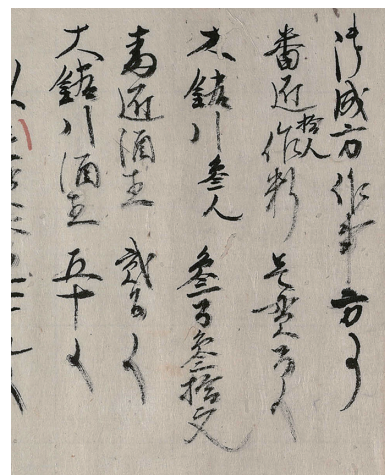 御成方作事方事
番匠拾人作料 壱貫百文
大鋸引参人 参百参拾文
番匠酒直 弐百文
大鋸引酒直 五十文